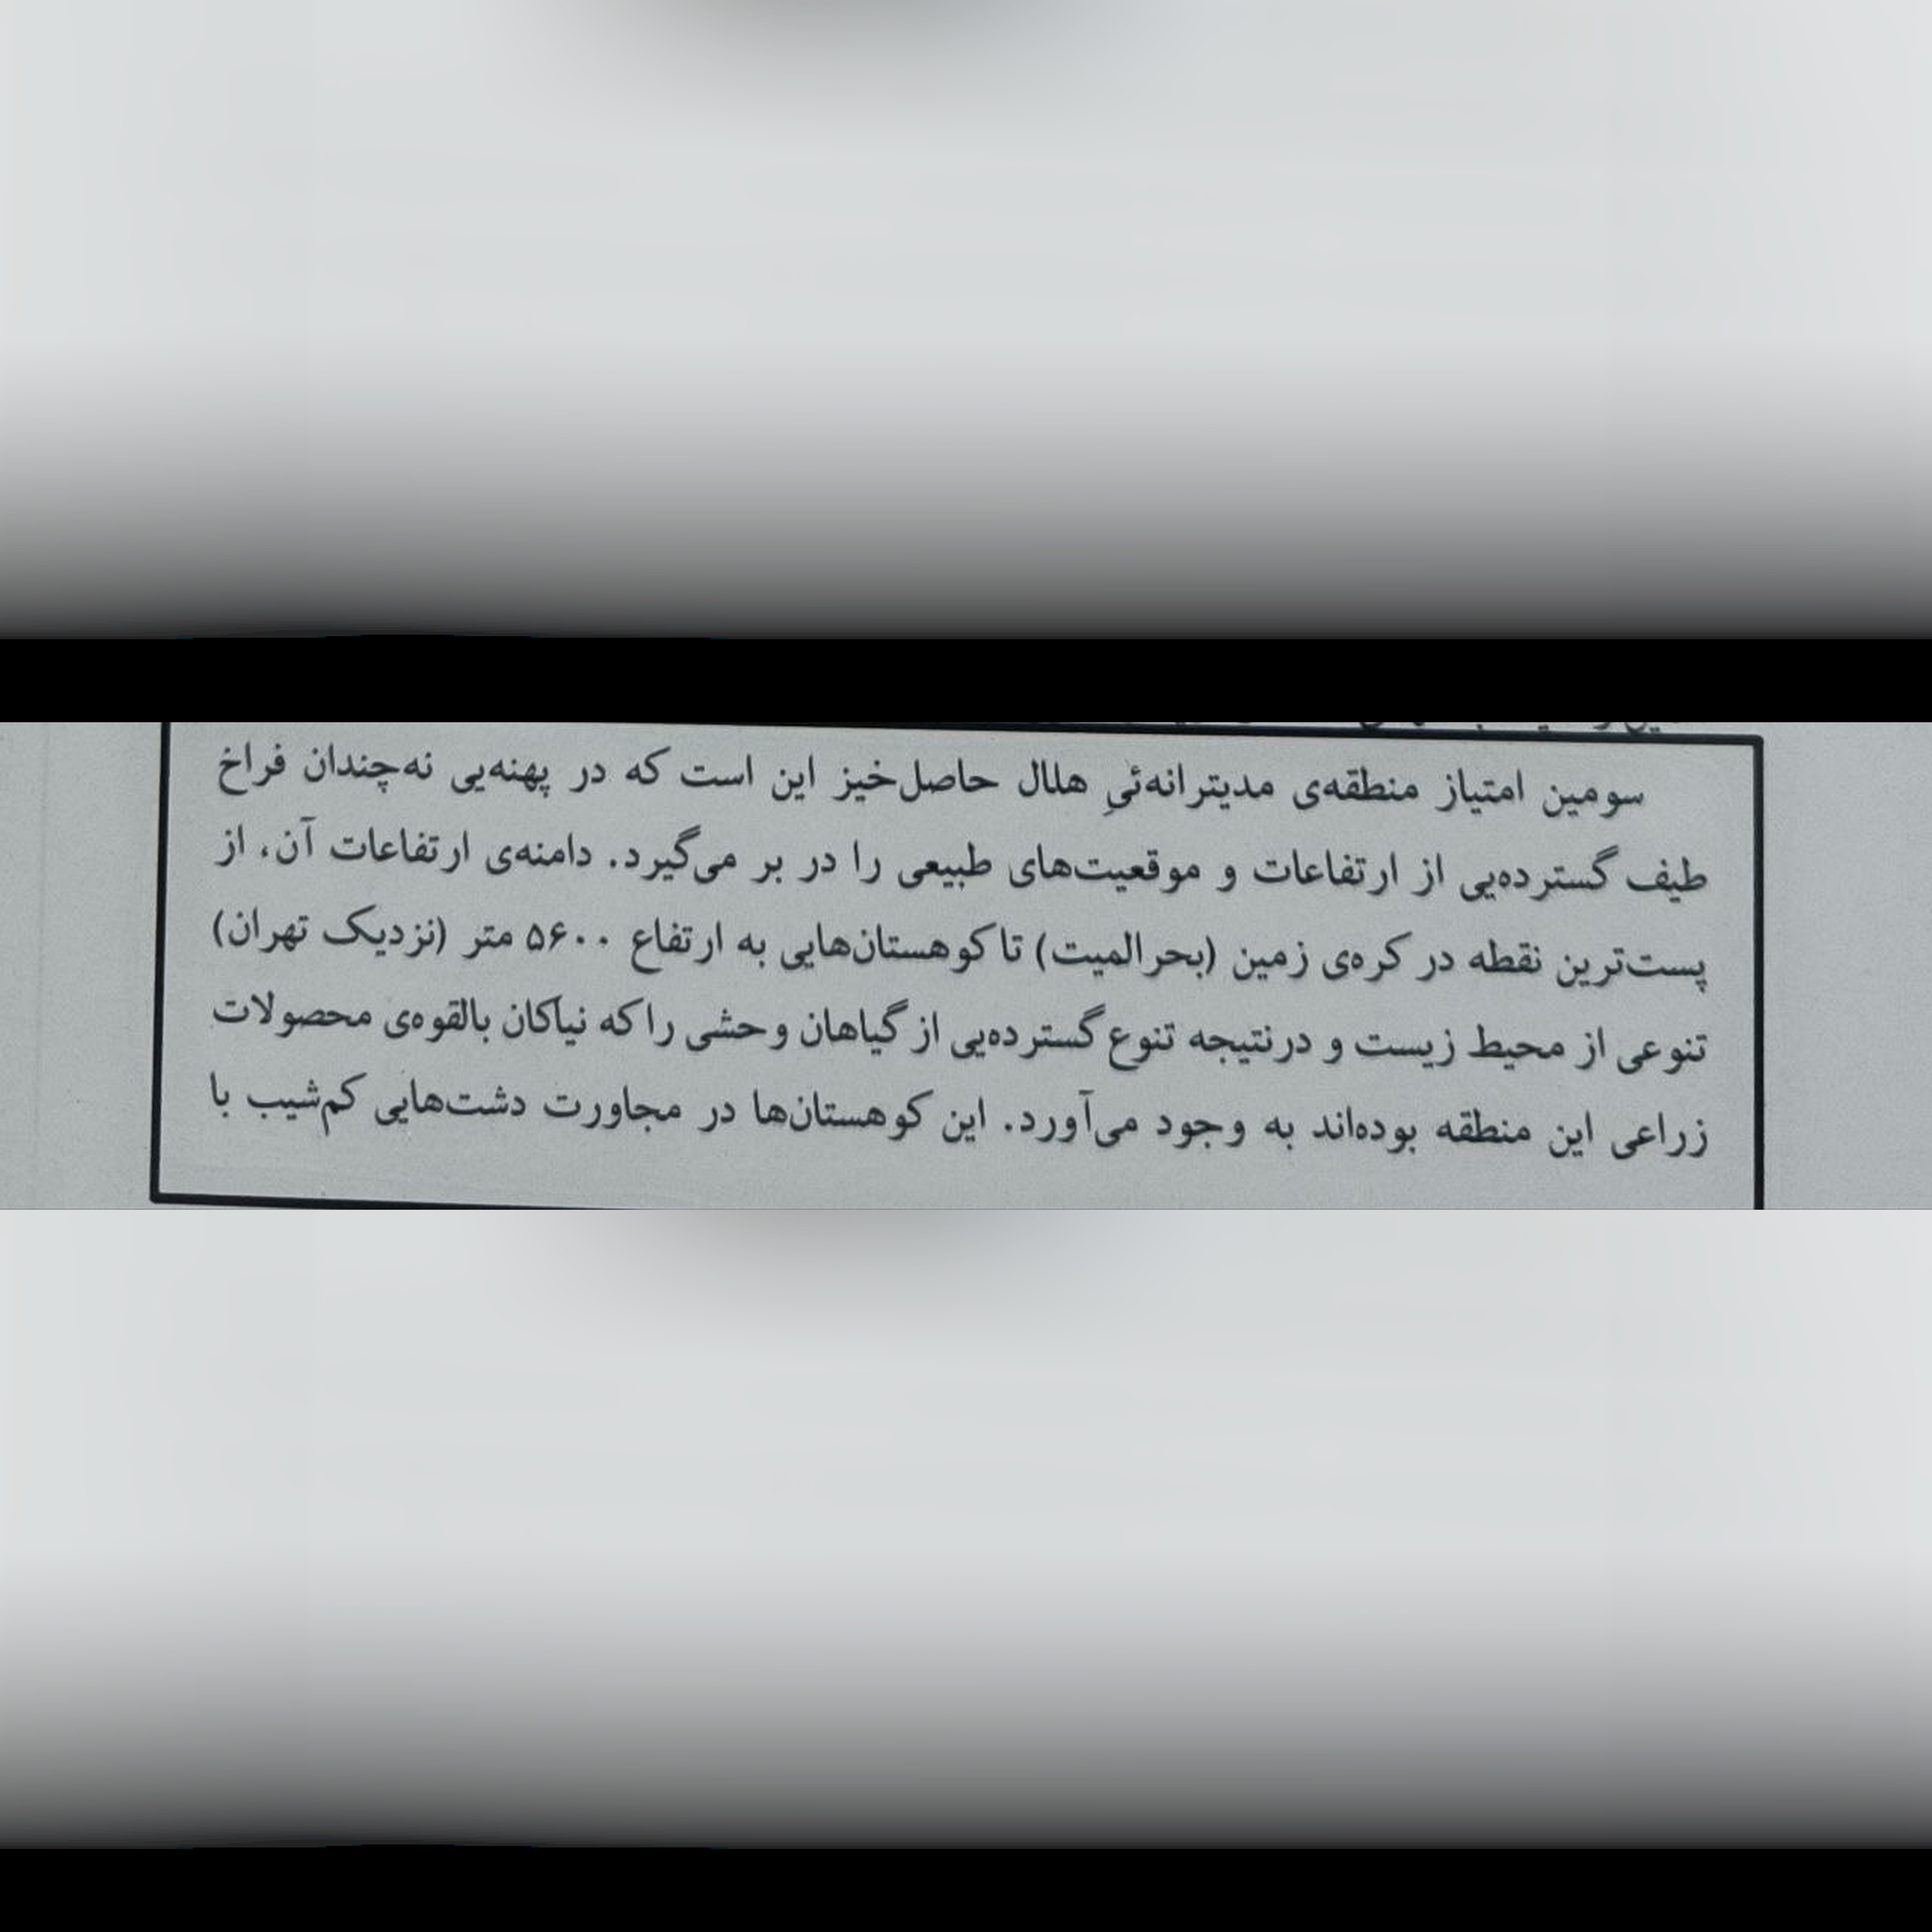 سومین امتیاز منطقه‌ی مدیترانه‌ئیِ هلال حاصل‌خیز این است که در پهنه‌یی نه‌چندان فراخ
طیف گسترده‌یی از ارتفاعات و موقعیت‌های طبیعی را در بر می‌گیرد. دامنه‌ی ارتفاعات آن، از
پست‌ترین نقطه در کره‌ی زمین (بحرالمیت) تا کوهستان‌هایی به ارتفاع ۵۶۰۰ متر (نزدیک تهران)
تنوعی از محیط زیست و درنتیجه تنوع گسترده‌یی از گیاهان وحشی را که نیاکان بالقوه‌ی محصولات
زراعی این منطقه بوده‌اند به وجود می‌آورد. این کوهستان‌ها در مجاورت دشت‌هایی کم‌شیب با